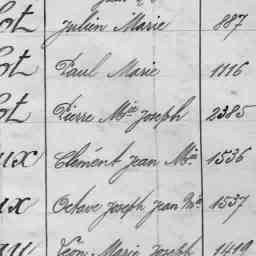 ot Julien Marie 887
ot Paul Marie 1116
ot Pierre Mie Joseph 2385
ux Clément Jean Mie 1536
ux Octave Joseph Jean Mie 1537
Léon Marie Joseph 1419